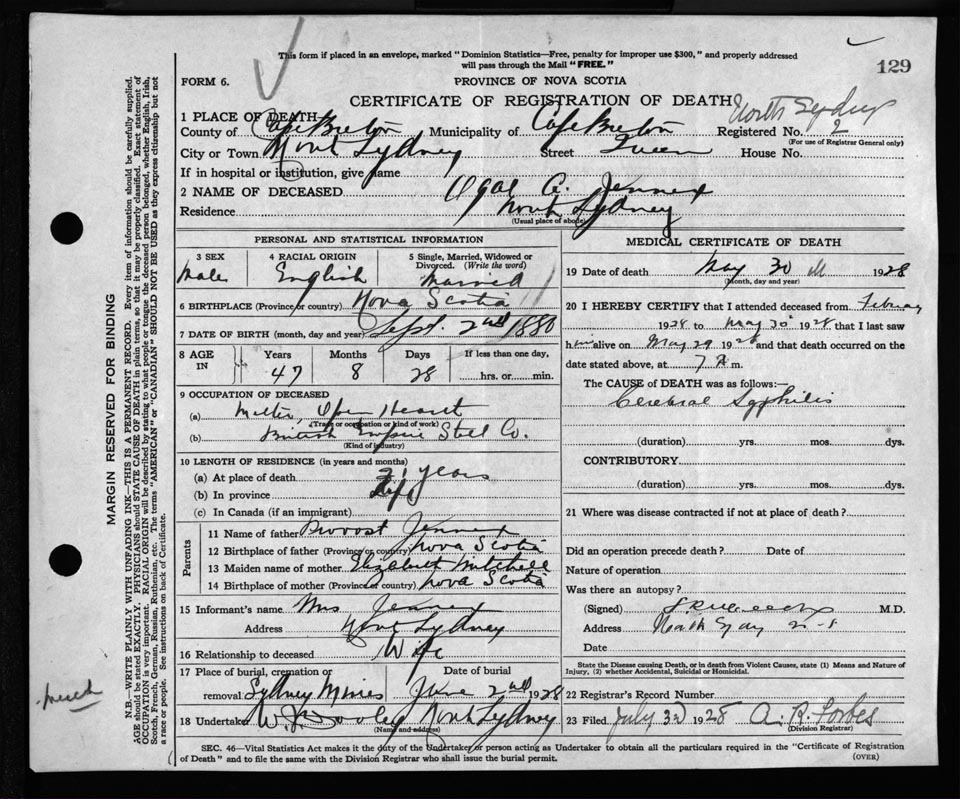 This form if placed in an envelope, marked "Dominion Statistics—Free, penalty for improper use $300," and properly addressed
will pass through the Mail "FREE."
129
FORM 6.
PROVINCE OF NOVA SCOTIA
CERTIFICATE OF REGISTRATION OF DEATH
North Sydney
1 PLACE OF DEATH
County of Cape Breton Municipality of Cape Breton Registered No. 2
(For use of Registrar General only)
City or Town North Sydney Street Queen House No.
If in hospital or institution, give name
2 NAME OF DECEASED A. Jennex
Residence North Sydney
(Usual place of abode)
PERSONAL AND STATISTICAL INFORMATION
3 SEX 4 RACIAL ORIGIN 5 Single, Married, Widowed or Divorced. (Write the word)
Male English Married
6 BIRTHPLACE (Province or country) Nova Scotia
7 DATE OF BIRTH (month, day and year) Sept. 2nd 1880
8 AGE IN Years Months Days If less than one day,
47 8 28 hrs. or min.
9 OCCUPATION OF DECEASED
(a) Melter, Open Heart
(Trade or occupation or kind of work)
(b) British Empire Steel Co.
(Kind of industry)
10 LENGTH OF RESIDENCE (in years and months)
(a) At place of death years
(b) In province Life
(c) In Canada (if an immigrant)
Parents
11 Name of father Provost Jennex
12 Birthplace of father (Province or country) Nova Scotia
13 Maiden name of mother Elizabeth Mitchell
14 Birthplace of mother (Province or country) Nova Scotia
15 Informant's name Mrs Jennex
Address North Sydney
16 Relationship to deceased Wife
17 Place of burial, cremation or Date of burial
removal Sydney Mines June 2nd 1928
18 Undertaker W. J. Dooley North Sydney
(Name and address)
MEDICAL CERTIFICATE OF DEATH
19 Date of death May 30 th 1928
(Month, day and year)
20 I HEREBY CERTIFY that I attended deceased from February
1928 to May 30 1928 that I last saw
him alive on May 29 1928 and that death occurred on the
date stated above, at 7 A m.
The CAUSE of DEATH was as follows:—
Cerebral Syphilis
(duration) yrs. mos. dys.
CONTRIBUTORY
(duration) yrs. mos. dys.
21 Where was disease contracted if not at place of death?
Did an operation precede death? Date of
Nature of operation
Was there an autopsy?
(Signed) M.D.
Address North Sydney
Date
State the Disease causing Death, or in death from Violent Causes, state (1) Means and Nature of
Injury, (2) whether Accidental, Suicidal or Homicidal.
22 Registrar's Record Number
23 Filed July 3rd 1928 A. R. Forbes
(Division Registrar)
SEC. 46—Vital Statistics Act makes it the duty of the Undertaker or person acting as Undertaker to obtain all the particulars required in the "Certificate of Registration
of Death" and to file the same with the Division Registrar who shall issue the burial permit.
(OVER)
MARGIN RESERVED FOR BINDING
N.B.—WRITE PLAINLY WITH UNFADING INK—THIS IS A PERMANENT RECORD. Every item of information should be carefully supplied.
AGE should be stated EXACTLY. PHYSICIANS should STATE CAUSE OF DEATH in plain terms, so that it may be properly classified. Exact statement of
OCCUPATION is very important. RACIAL ORIGIN will be described by stating to what people or tongue the deceased person belonged, whether English, Irish,
Scotch, French, German, Russian, Ruthenian, etc. The terms "AMERICAN" or "CANADIAN" SHOULD NOT BE USED as they express citizenship but not
a race or people. See instructions on back of Certificate.